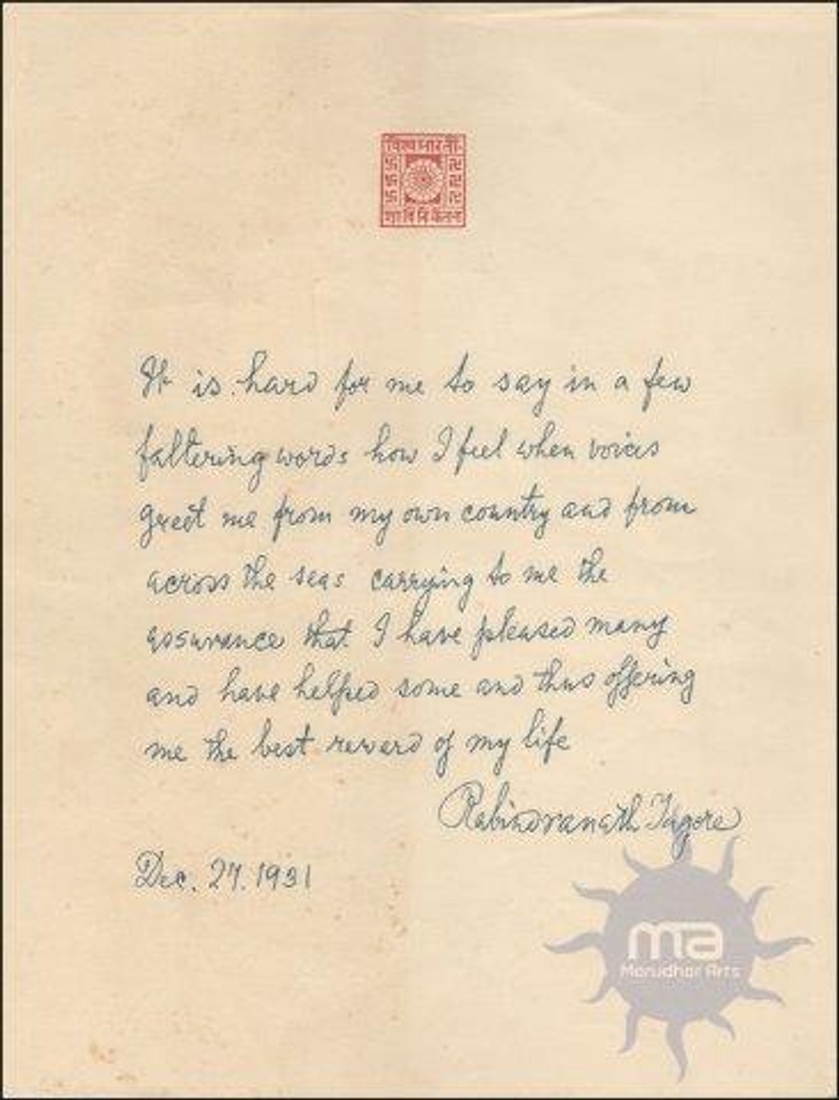 विश्व भारती
शान्तिनिकेतन
It is hard for me to say in a few
faltering words how I feel when voices
greet me from my own country and from
across the seas carrying to me the
assurance that I have pleased many
and have helped some and thus offering
me the best reward of my life
Rabindranath Tagore
Dec. 27. 1931
ma
Marudhar Arts